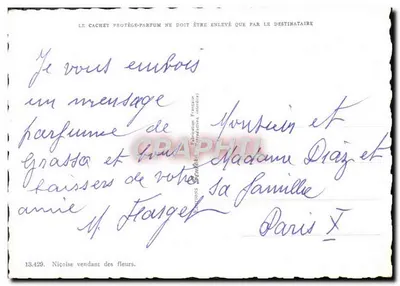 LE CACHET PROTÈGE-PARFUM NE DOIT ÊTRE ENLEVÉ QUE PAR LE DESTINATAIRE
Je vous embois
un message
parfumé de
Grassa et tout
baissers de votre
amie
M Farget
Monsieur et
Madame Diaz et
sa famille
Paris X
13.429. Niçoise vendant des fleurs.